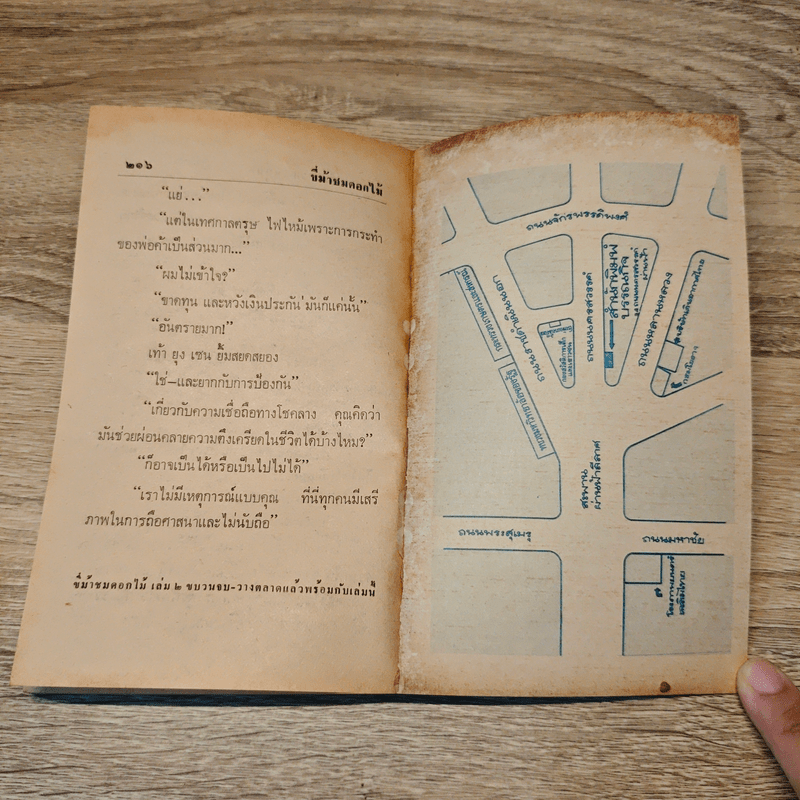 ๒๑๖
ขี่ม้าชมดอกไม้
“แย่...”
“แต่ในเทศกาลตรุษ ไฟไหม้เพราะการกระทำ
ของพ่อค้าเป็นส่วนมาก...”
“ผมไม่เข้าใจ?”
“ขาดทุน และหวังเงินประกัน มันก็แค่นั้น”
“อันตรายมาก!”
เท้า ยุง เซน ยิ้มสยดสยอง
“ใช่—และยากกับการป้องกัน”
“เกี่ยวกับความเชื่อถือทางโชคลาง คุณคิดว่า
มันช่วยผ่อนคลายความตึงเครียดในชีวิตได้บ้างไหม?”
“ก็อาจเป็นได้หรือเป็นไปไม่ได้”
“เราไม่มีเหตุการณ์แบบคุณ ที่นี่ทุกคนมีเสรี
ภาพในการถือศาสนาและไม่นับถือ”
ขี่ม้าชมดอกไม้ เล่ม ๒ ขบวนจบ-วางตลาดแล้วพร้อมกับเล่มนี้
ถนนจักรพรรดิพงศ์
ถนนราชดำเนินนอก
ถนนนครสวรรค์
สำนักพิมพ์
บรรณกิจ
ถนนหลานหลวง
สะพาน
ผ่านฟ้าลีลาศ
ถนนพระสุเมรุ
ถนนมหาชัย